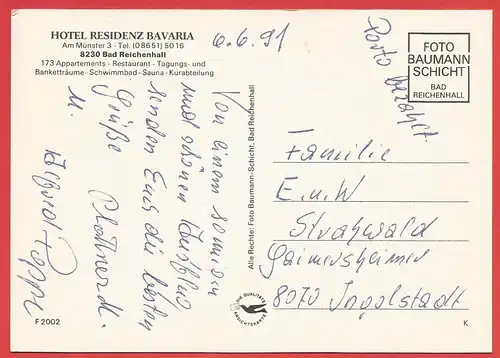 HOTEL RESIDENZ BAVARIA
Am Münster 3 - Tel. (08651) 5016
8230 Bad Reichenhall
173 Appartements - Restaurant - Tagungs- und
Banketträume - Schwimmbad - Sauna - Kurabteilung
6.6.91
Porto
bezahlt
FOTO
BAUMANN
SCHICHT
BAD
REICHENHALL
Von einem sonnigen
und schönen Ausflug
senden Euch die besten
Grüße
u.
Alle Rechte: Foto Baumann-Schicht, Bad Reichenhall
Familie
E. u. W
Strahwald
Gaimersheimer
8070 Ingolstadt
DIE QUALITÄTS
ANSICHTSKARTE
F 2002
K